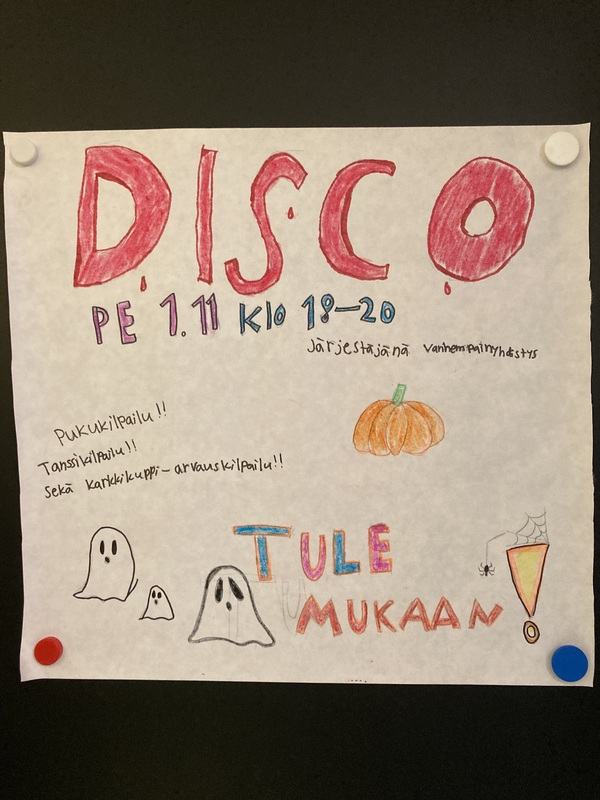 DISCO
PE 1.11 klo 18-20
Järjestäjänä vanhempainyhdistys
Pukukilpailu!!
Tanssikilpailu!!
Sekä karkkikuppi-arvauskilpailu!!
TULE
MUKAAN!